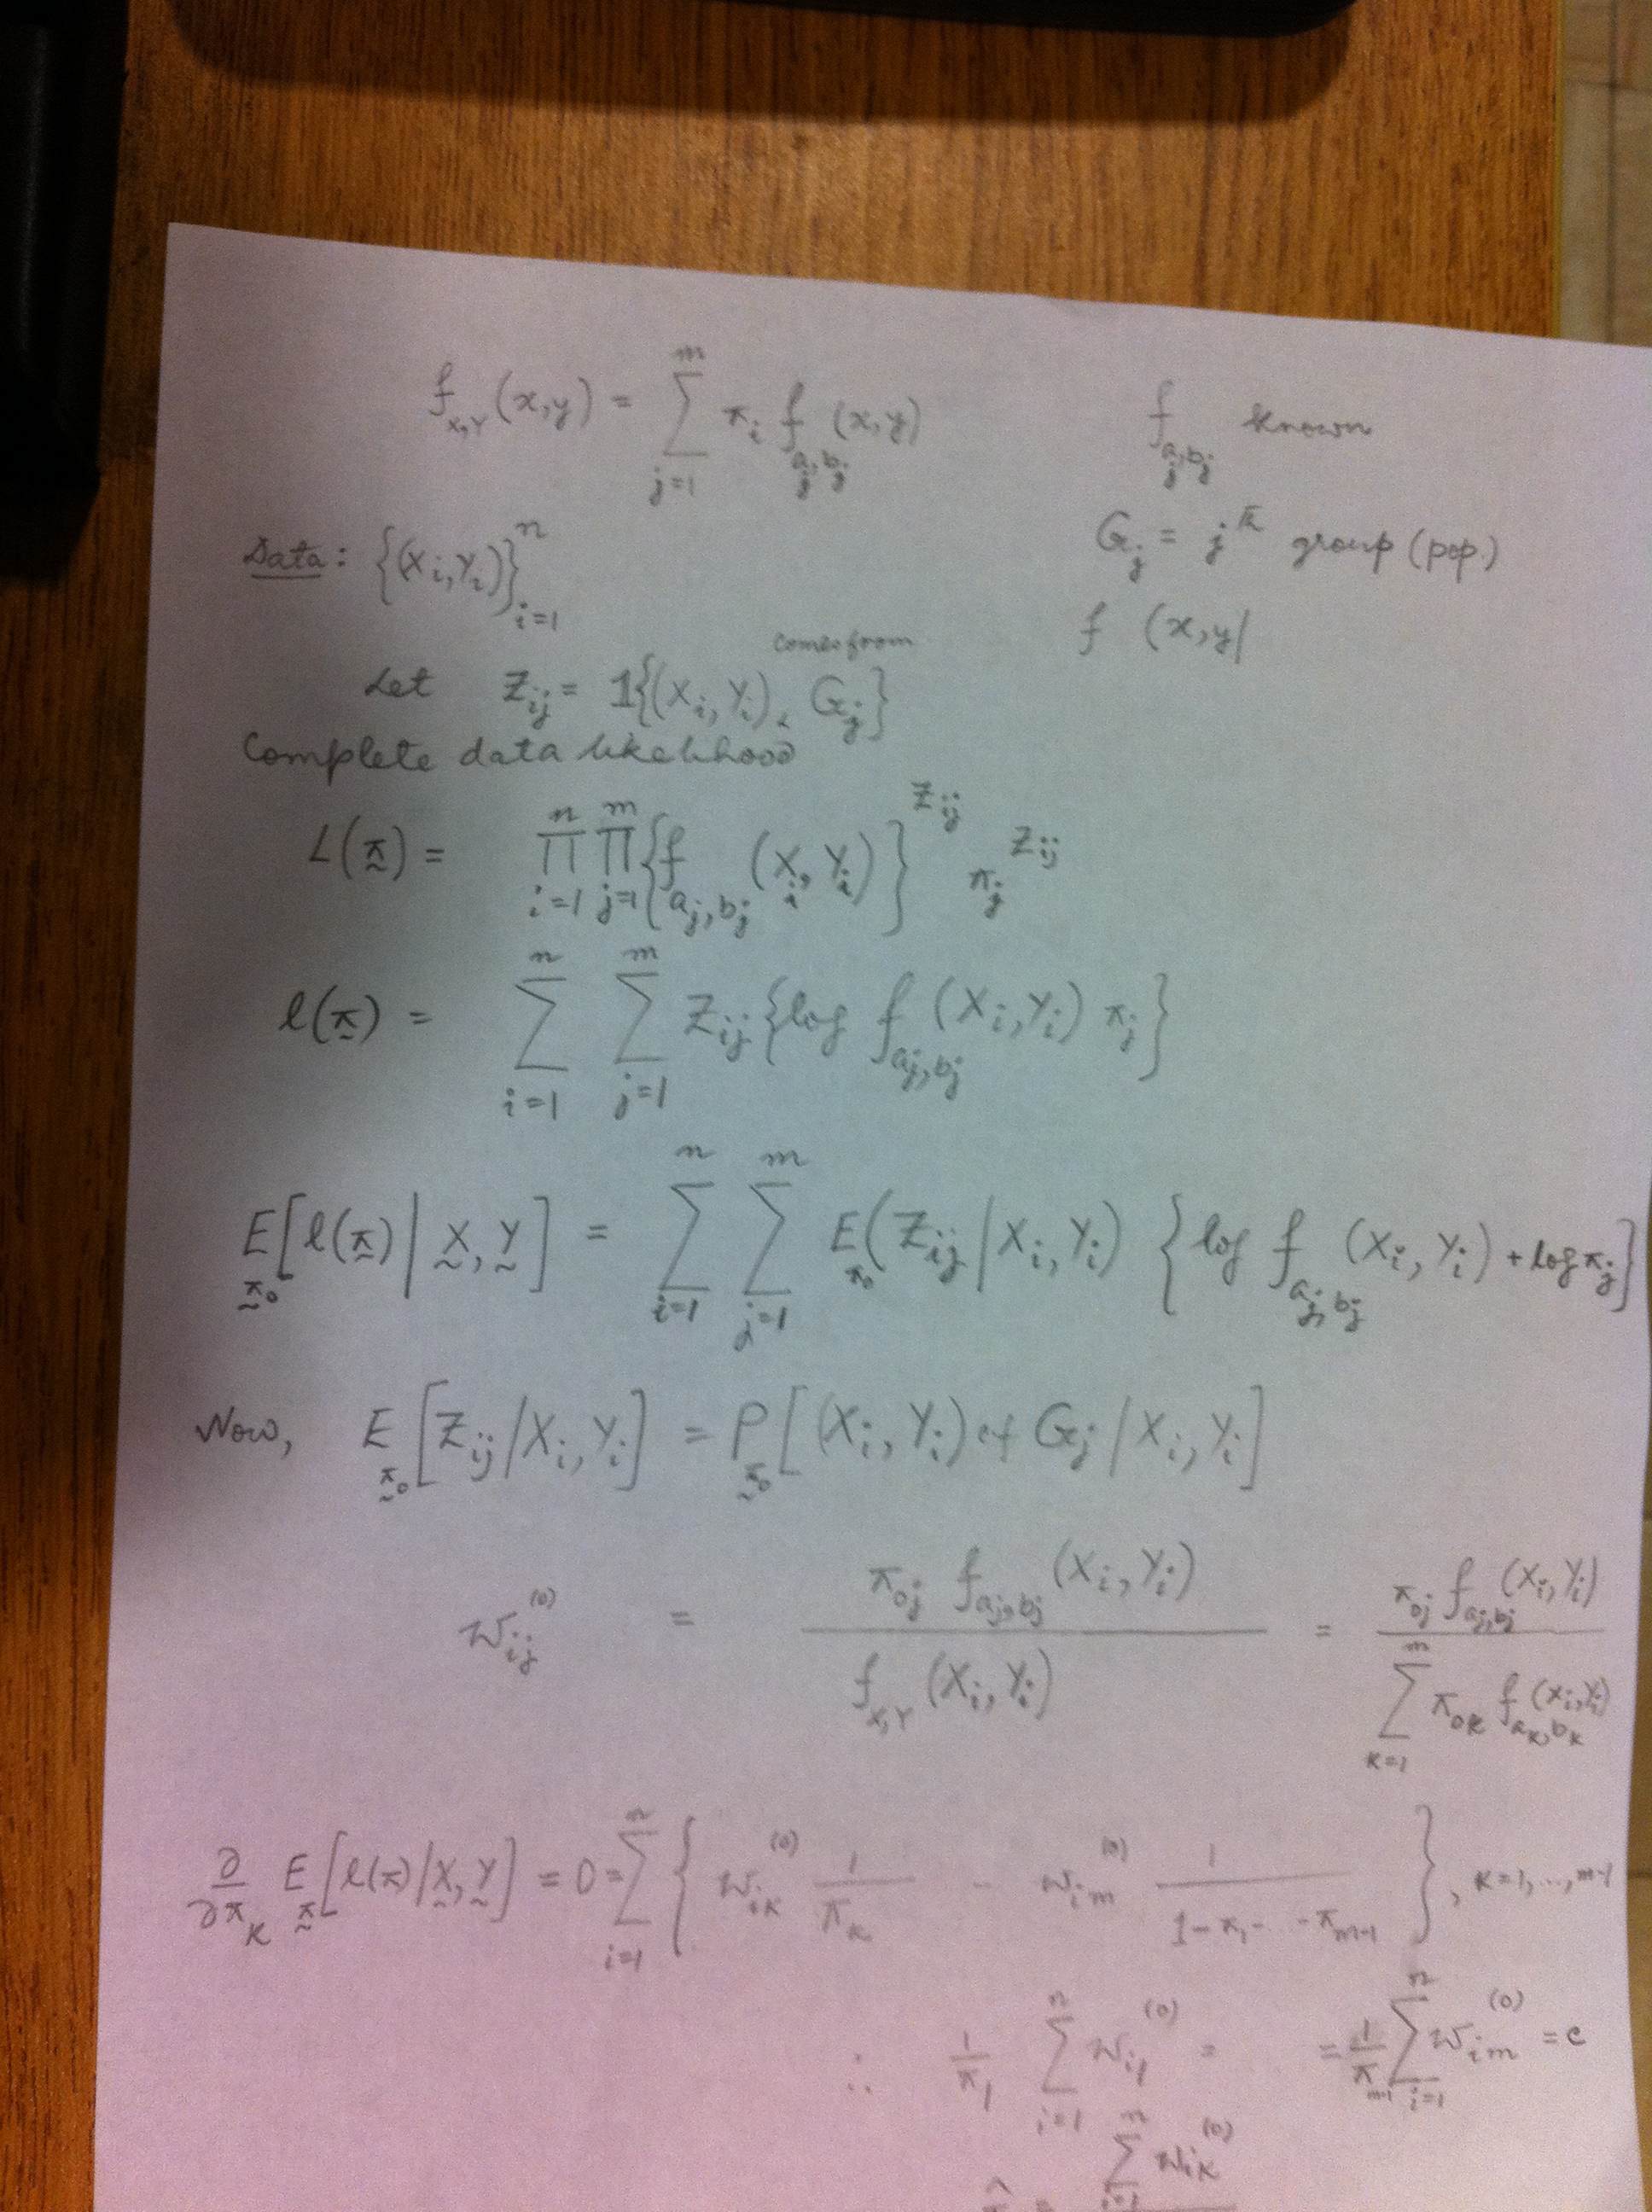 f_{X,Y}(x,y) = \sum_{j=1}^{m} π_i f_{a_j,b_j}(x,y)    f_{a_j,b_j} known
Data: {(X_i,Y_i)}_{i=1}^{n}    G_j = j^{th} group (pop.)
f (x,y|
Let Z_{ij} = 1{(X_i,Y_i) comes from G_j}
Complete data likelihood
L(π) = \prod_{i=1}^{n} \prod_{j=1}^{m} {f_{a_j,b_j}(X_i,Y_i)}^{Z_{ij}} π_j^{Z_{ij}}
l(π) = \sum_{i=1}^{n} \sum_{j=1}^{m} Z_{ij} {log f_{a_j,b_j}(X_i,Y_i) π_j}
E_{π_0}[l(π) | X, Y] = \sum_{i=1}^{n} \sum_{j=1}^{m} E_{π_0}(Z_{ij} | X_i,Y_i) {log f_{a_j,b_j}(X_i,Y_i) + log π_j}
Now, E_{π_0}[Z_{ij} | X_i,Y_i] = P_{π_0}[(X_i,Y_i) cf G_j | X_i,Y_i]
w_{ij}^{(0)} = \frac{π_{0j} f_{a_j,b_j}(X_i,Y_i)}{f_{X,Y}(X_i,Y_i)} = \frac{π_{0j} f_{a_j,b_j}(X_i,Y_i)}{\sum_{k=1}^{m} π_{0k} f_{a_k,b_k}(X_i,Y_i)}
\frac{∂}{∂π_k} E_{π}[l(π) | X, Y] = 0 = \sum_{i=1}^{n} { w_{ik}^{(0)} \frac{1}{π_k} - w_{im}^{(0)} \frac{1}{1-π_1-...-π_{m-1}} }, k=1,...,m-1
∴ \frac{1}{π_1} \sum_{i=1}^{n} w_{i1}^{(0)} = = \frac{1}{π_{m-1}} \sum_{i=1}^{n} w_{im}^{(0)} = c
= \sum_{i=1}^{n} w_{ik}^{(0)}